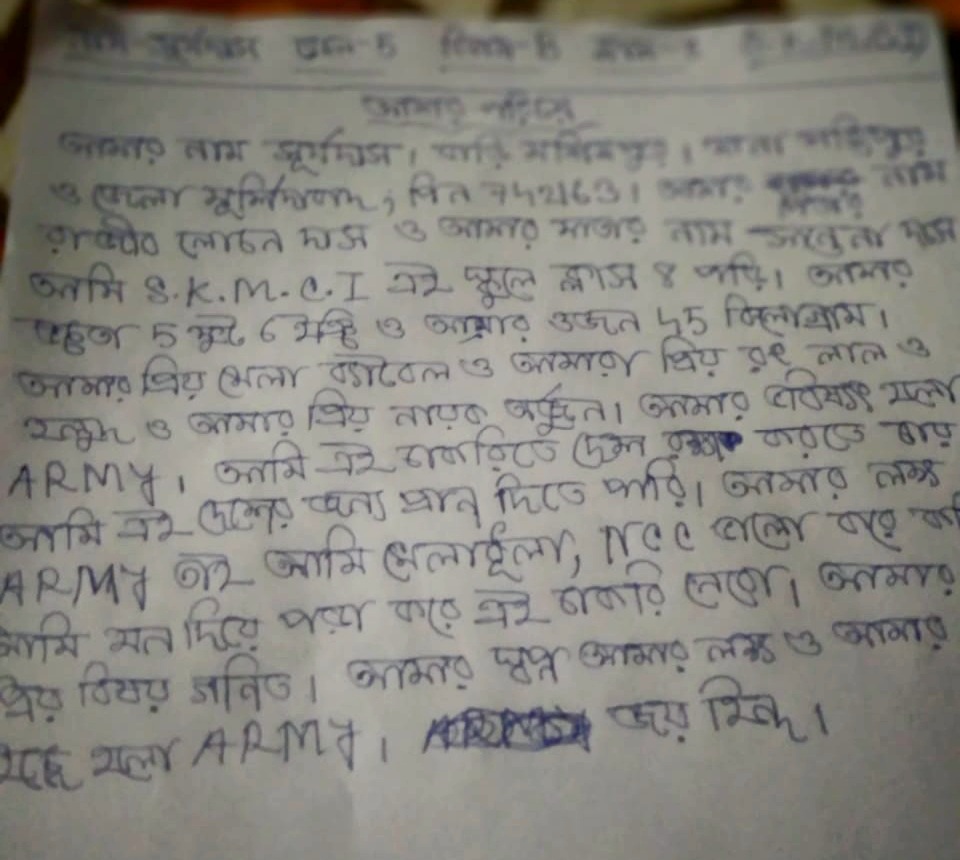 নাম সূর্যদাস রোল-5 বিভাগ-B
আমার পরিচয়
আমার নাম সূর্যদাস। বাড়ি মহিষপুর। থানা
ও জেলা মুর্শিদাবাদ, পিন 742163। আমার পিতার নাম
রাজীব লোচন দাস ও আমার মাতার নাম দাস
আমি S.K.M.C.I এই স্কুলে ক্লাস 8 পড়ি। আমার
উচ্চতা 5 ফুট 6 ইঞ্চি ও আমার ওজন 45 কিলোগ্রাম।
আমার প্রিয় খেলা ও আমারা প্রিয় রং লাল ও
হলুদ ও আমার প্রিয় নায়ক অর্জুন। আমার ভবিষ্যৎ হলো
ARMY। আমি এই চাকরিতে দেশ রক্ষা করতে চায়
আমি এই দেশের জন্য প্রান দিতে পারি। আমার লক্ষ
ARMY তাই আমি খেলাধূলা, NCC ভালো করে করি
আমি মন দিয়ে পড়া করে এই চাকরি নেবো। আমার
প্রিয় বিষয় গনিত। আমার স্বপ্ন আমার লক্ষ ও আমার
হলো ARMY। জয় হিন্দ।